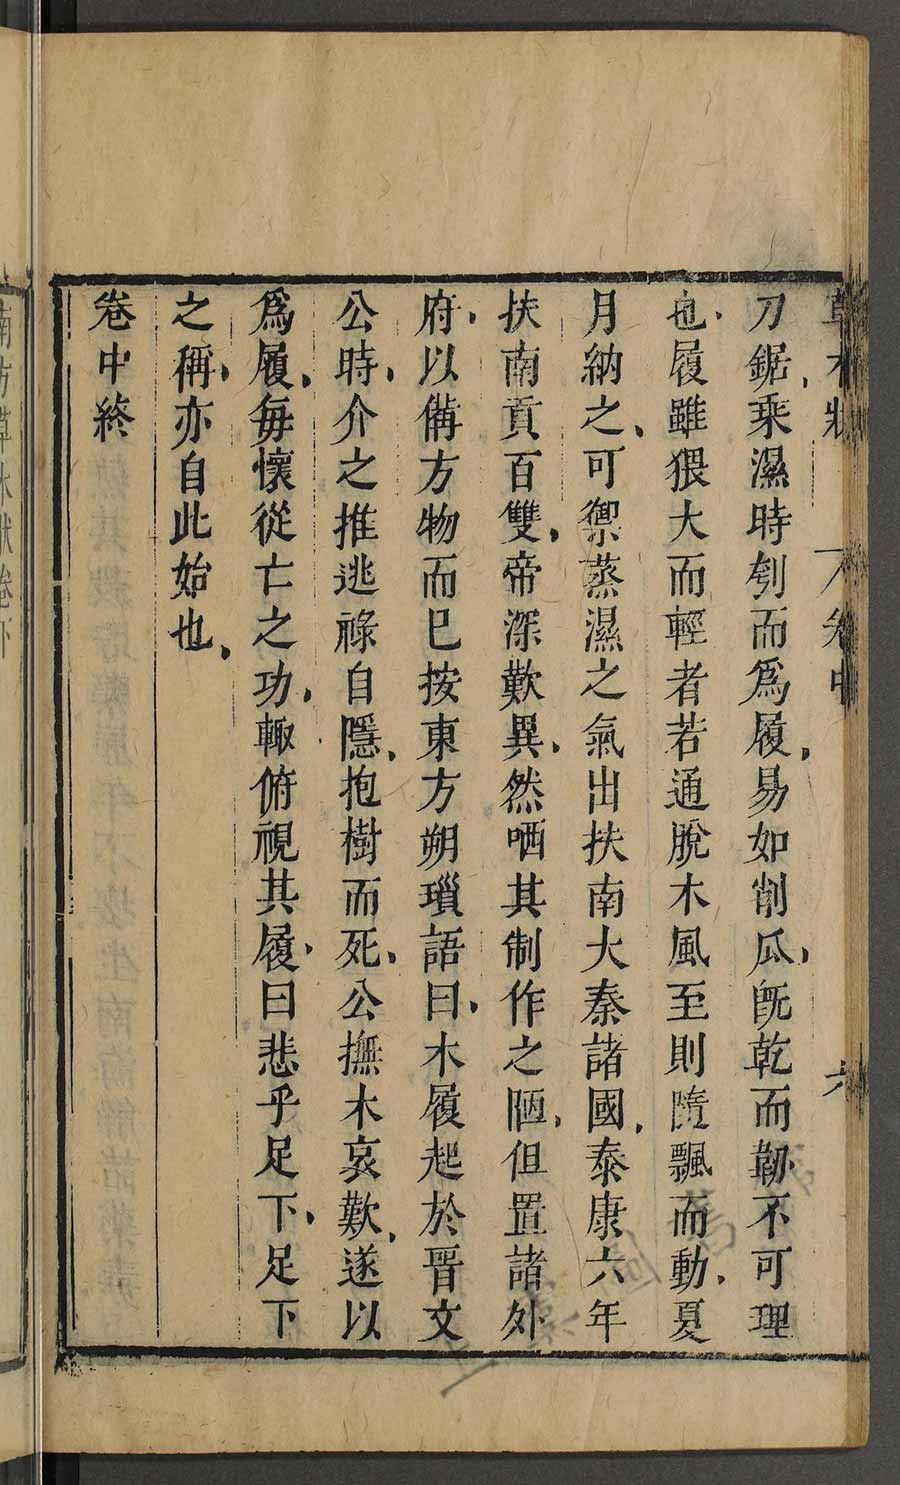 草木狀 卷中 六
刀鋸乘濕時刳而爲履易如削瓜旣乾而韌不可理
也履雖猥大而輕者若通脫木風至則隨飄而動夏
月納之可禦蒸濕之氣出扶南大秦諸國泰康六年
扶南貢百雙帝深歎異然哂其制作之陋但置諸外
府以備方物而已按東方朔瑣語曰木履起於晉文
公時介之推逃祿自隱抱樹而死公撫木哀歎遂以
爲履每懷從亡之功輙俯視其履曰悲乎足下足下
之稱亦自此始也
卷中終
南方草木狀卷下